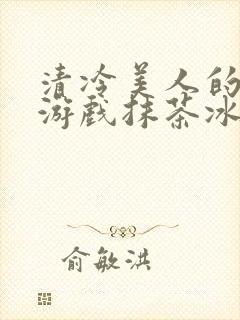 清冷美人的
游戏抹茶冰
俞敏洪